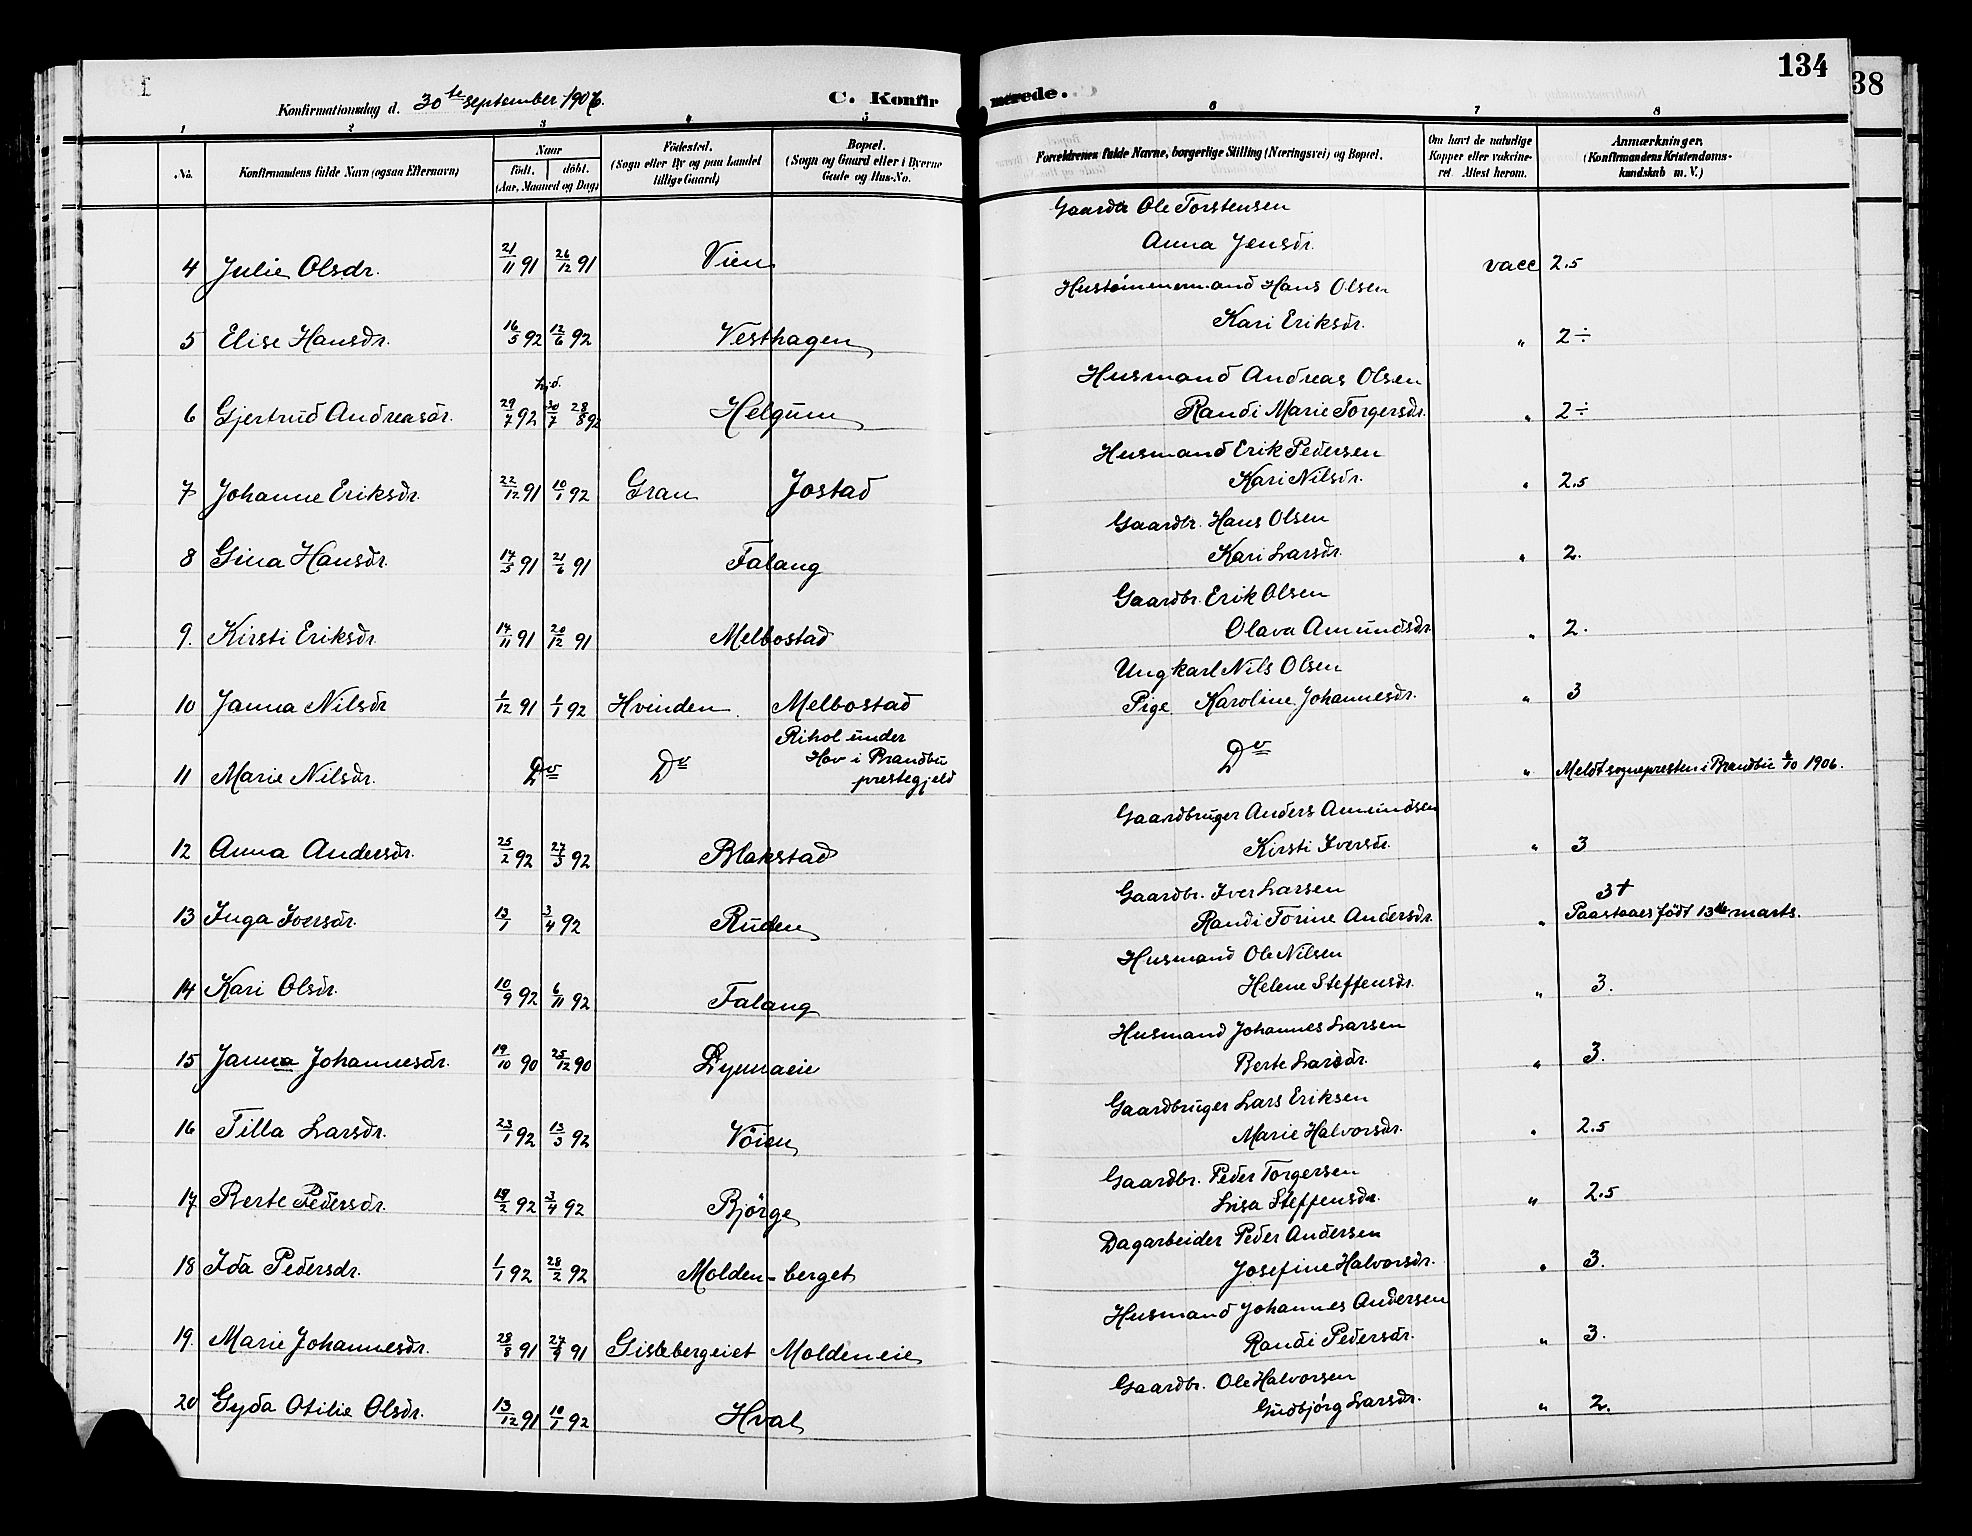 134
38
Konfirmationsdag d. 30te september 1906.
C. Konfirmerede.
1 2 3 4 5 6 7 8
No.
Konfirmandens fulde Navn (ogsaa Efternavn)
Naar
födt. döbt.
(Aar, Maaned og Dag)
Födested.
(Sogn eller By og paa Landet
tillige Gaard)
Bopæl.
(Sogn og Gaard eller i Byerne
Gade og Hus-No.
Forældrenes fulde Navne, borgerlige Stilling (Næringsvei) og Bopæl.
Om havt de naturlige
Kopper eller vakcine-
ret. Attest herom.
Anmærkninger.
(Konfirmandens Kristendoms-
kundskab m. V.)
Gaardbr Ole Torstensen
Anna Jensdr.
4 Julie Olsdr. 21/11 91 26/12 91 Vien vacc 2.5
Hans Olsen
Kari Eriksdr.
5 Elise Hansdr. 16/5 92 12/6 92 Vesthagen " 2÷
Husmand Andreas Olsen
Randi Marie Torgersdr.
hjd.
6 Gjertrud Andreasdr. 29/7 92 30/7 28/8 92 Helgum " 2÷
Husmand Erik Pedersen
Kari Nilsdr.
7 Johanne Eriksdr. 22/12 91 10/1 92 Gran Jostad " 2.5
Gaardbr. Hans Olsen
Kari Larsdr.
8 Gina Hansdr. 17/5 91 21/6 91 Falang " 2.
Gaardbr. Erik Olsen
Olava Amundsdr.
9. Kirsti Eriksdr. 14/11 91 20/12 91 Melbostad " 2.
Ungkarl Nils Olsen
Pige Karoline Johannesdr.
10 Janna Nilsdr 1/12 91 1/1 92 Hvinden. Melbostad " 3
Rihol under
Hov i Brandbu
prestegjeld
11 Marie Nilsdr. Do Do Do " Meldt sognepresten i Brandbu 6/10 1906.
Gaardbruger Anders Amundsen
Kirsti Iversdr.
12 Anna Andersdr. 25/2 92 27/3 92 Blakstad " 3
Gaardbr. Iver Larsen
Randi Torine Andersdr.
3+
13 Inga Iversdr. 13/1 3/4 92 Ruden " Paastaaes födt 13de marts.
Husmand Ole Nilsen
Helene Steffensdr.
14 Kari Olsdr. 10/9 92 6/11 92 Falang " 3.
Husmand Johannes Larsen
Berte Larsdr.
15 Janna Johannesdr. 19/10 90 25/12 90 Lynnaeie " 3.
Gaardbruger Lars Eriksen
Marie Halvorsdr.
16 Tilla Larsdr. 23/1 92 13/3 92 Vöien " 2.5
Gaardbr. Peder Torgersen
Lisa Steffensdr.
17 Berte Pedersdr. 19/2 92 3/4 92 Björge " 2.5
Dagarbeider Peder Andersen
Josefine Halvorsdr.
18 Ida Pedersdr. 1/1 92 28/2 92 Molden-berget " 3.
Husmand Johannes Andersen
Randi Pedersdr.
19. Marie Johannesdr. 28/8 91 27/9 91 Gislebergeiet Moldeneie " 3.
Gaardbr. Ole Halvorsen
Gudbjørg Larsdr.
20 Gyda Otilie Olsdr. 13/12 91 10/1 92 Hval " 2.